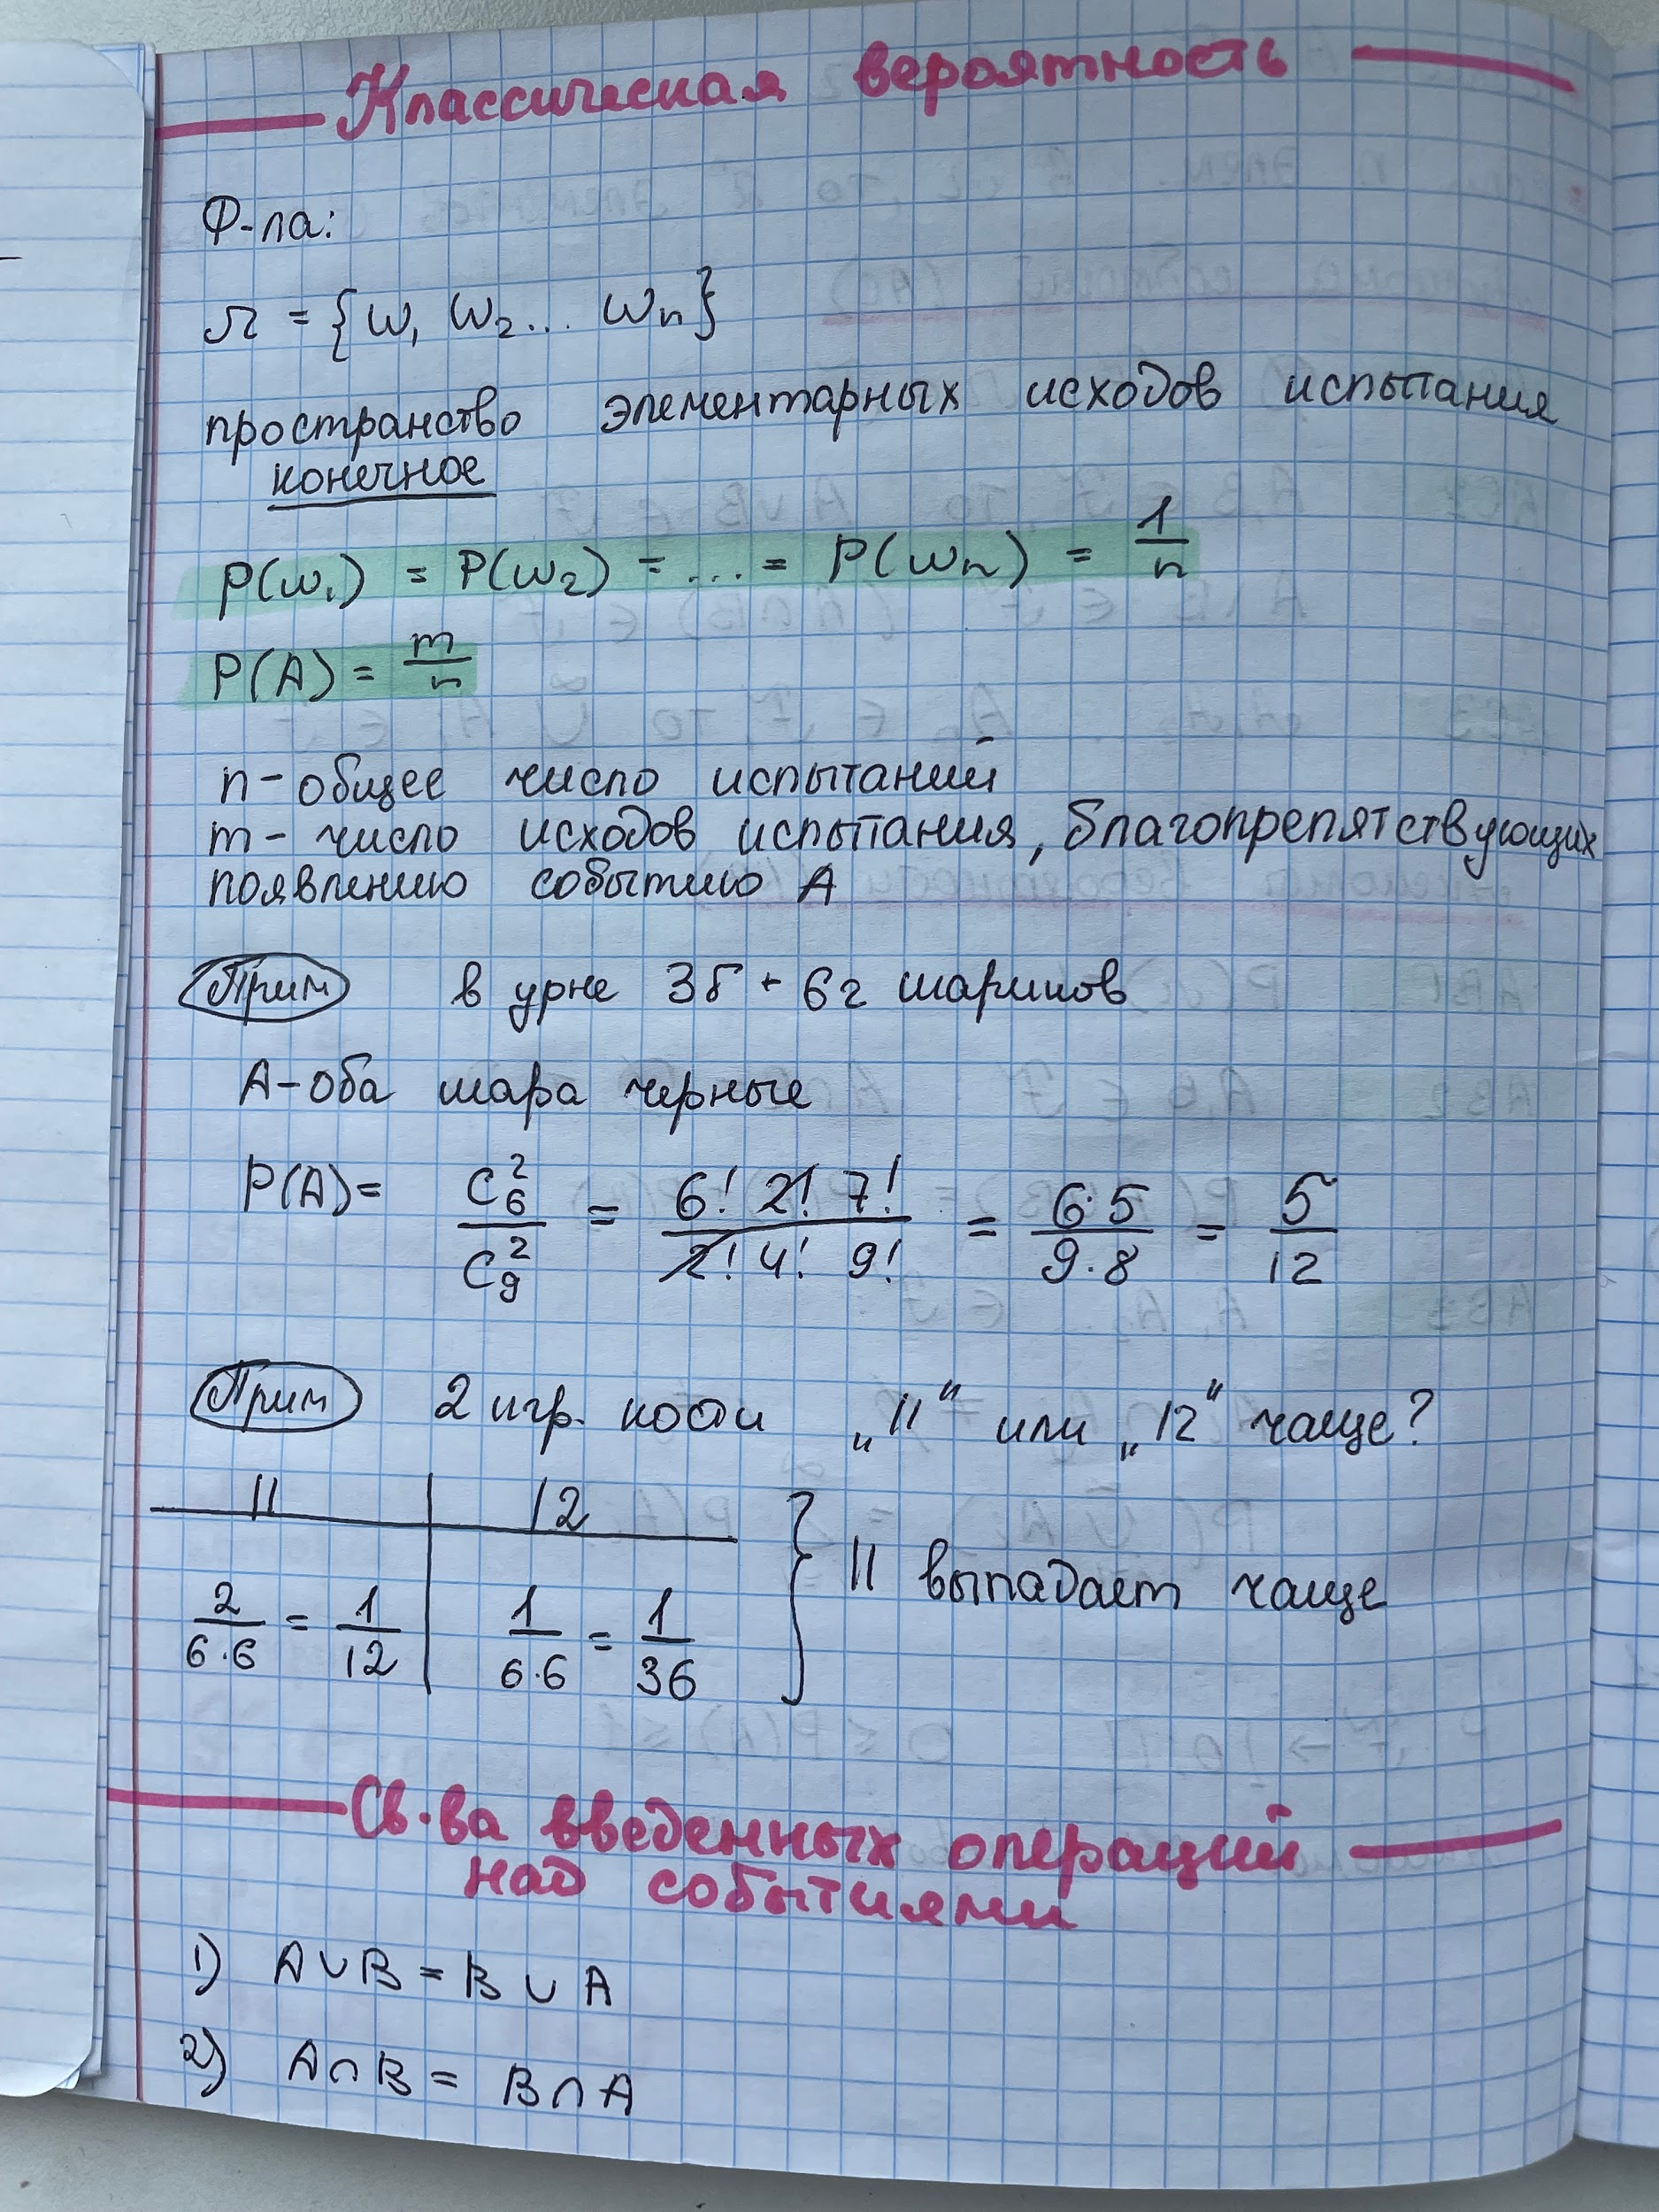 Классическая вероятность
Ф-ла:
Ω = {ω₁ ω₂... ωₙ}
пространство элементарных исходов испытания
конечное
P(ω₁) = P(ω₂) = ... = P(ωₙ) = 1/n
P(A) = m/n
n - общее число испытаний
m - число исходов испытания, благопрепятствующих
появлению событию A
Прим в урне 3б + 6г шариков
A - оба шара черные
P(A) = C₆²/C₉² = 6! 2! 7!/2! 4! 9! = 6·5/9·8 = 5/12
Прим 2 игр. кости „11“ или „12“ чаще?
11 12
2/6·6 = 1/12 1/6·6 = 1/36 } 11 выпадает чаще
Св-ва введенных операций
над событиями
1) A ∪ B = B ∪ A
2) A ∩ B = B ∩ A